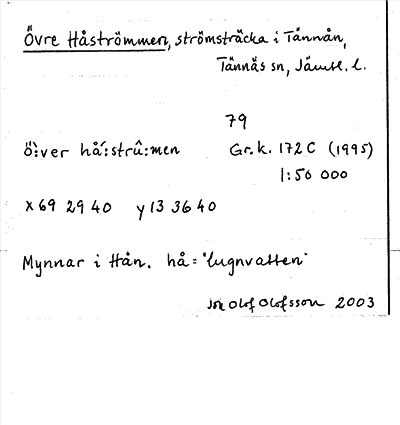 Övre Håströmmen, strömsträcka i Tännån,
Tännäs sn, Jämtl. l.
79
ö̀:ver hǻ:strû:men Gr.k. 172 C (1995)
1:50 000
x 69 29 40 y 13 36 40
Mynnar i Hån. hå = "lugnvatten"
Olof Olofsson 2003